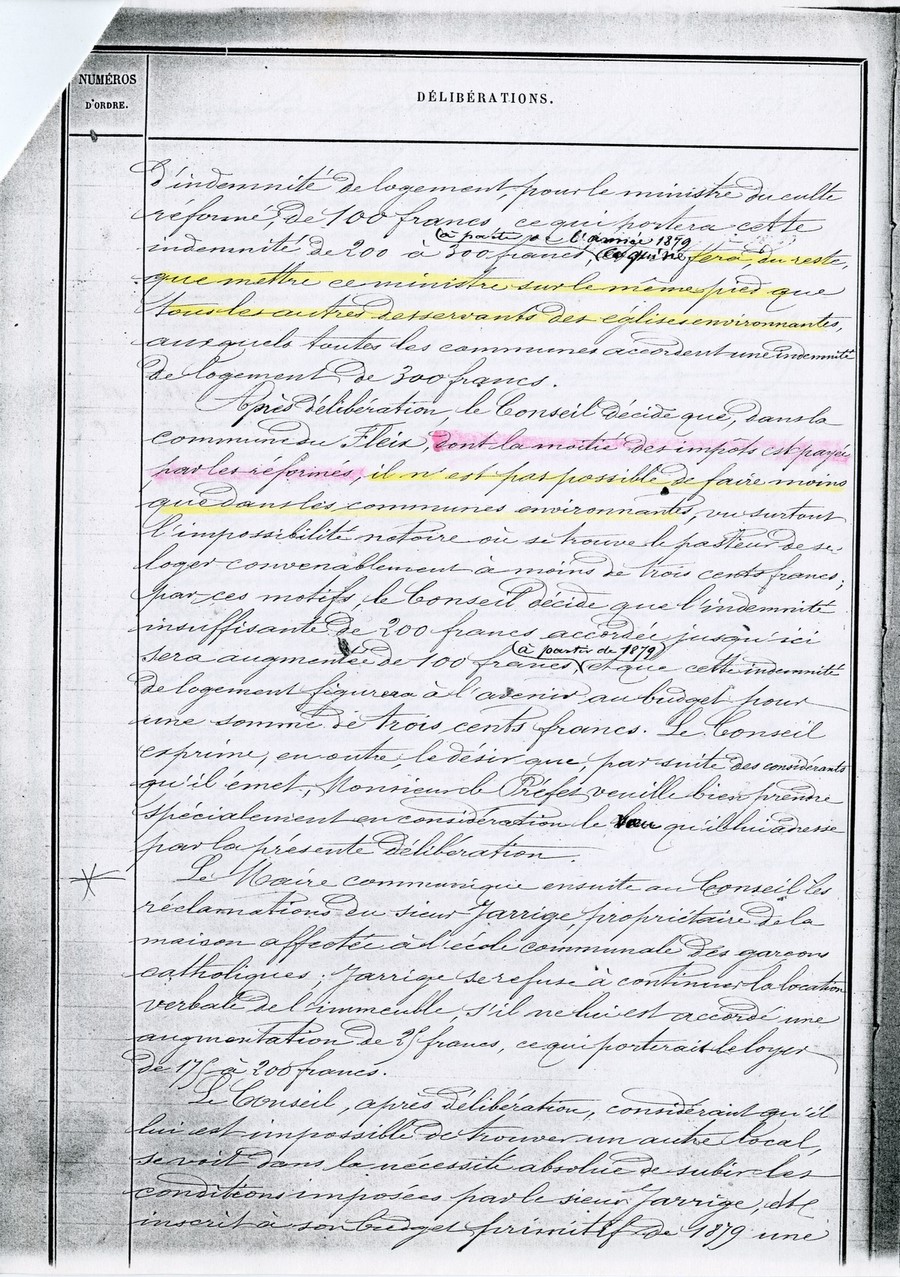 NUMÉROS
D'ORDRE.
DÉLIBÉRATIONS.
d'indemnité de logement, pour le ministre du culte
réformé, de 100 francs, ce qui portera cette
(à partir de l'année 1879
indemnité de 200 à 300 francs, ce qui ne fera, du reste,
que mettre ce ministre sur le même pied que
tous les autres desservants des églises environnantes,
auxquels toutes les communes accordent une indemnité
de logement de 300 francs.
Après délibération, le Conseil décide que, dans la
commune du Fleix, dont la moitié des impôts est payée
par les réformés, il n'est pas possible de faire moins
que dans les communes environnantes, vu surtout
l'impossibilité notoire où se trouve le pasteur de se
loger convenablement à moins de trois cents francs;
par ces motifs, le Conseil décide que l'indemnité
insuffisante de 200 francs accordée jusqu'ici
(à partir de 1879)
sera augmentée de 100 francs et que cette indemnité
de logement figurera à l'avenir au budget pour
une somme de trois cents francs. Le Conseil
exprime, en outre, le désir que, par suite des considérants
qu'il émet, Monsieur le Préfet veuille bien prendre
spécialement en considération le vœu qu'il lui adresse
par la présente délibération.
Le Maire communique ensuite au Conseil les
réclamations du sieur Jarrige, propriétaire de la
maison affectée à l'école communale des garçons
catholiques; Jarrige se refuse à continuer la location
verbale de l'immeuble, s'il ne lui est accordé une
augmentation de 25 francs, ce qui porterait le loyer
de 175 à 200 francs.
Le Conseil, après délibération, considérant qu'il
lui est impossible de trouver un autre local,
se voit dans la nécessité absolue de subir les
conditions imposées par le sieur Jarrige, et
inscrit à son budget primitif de 1879 une